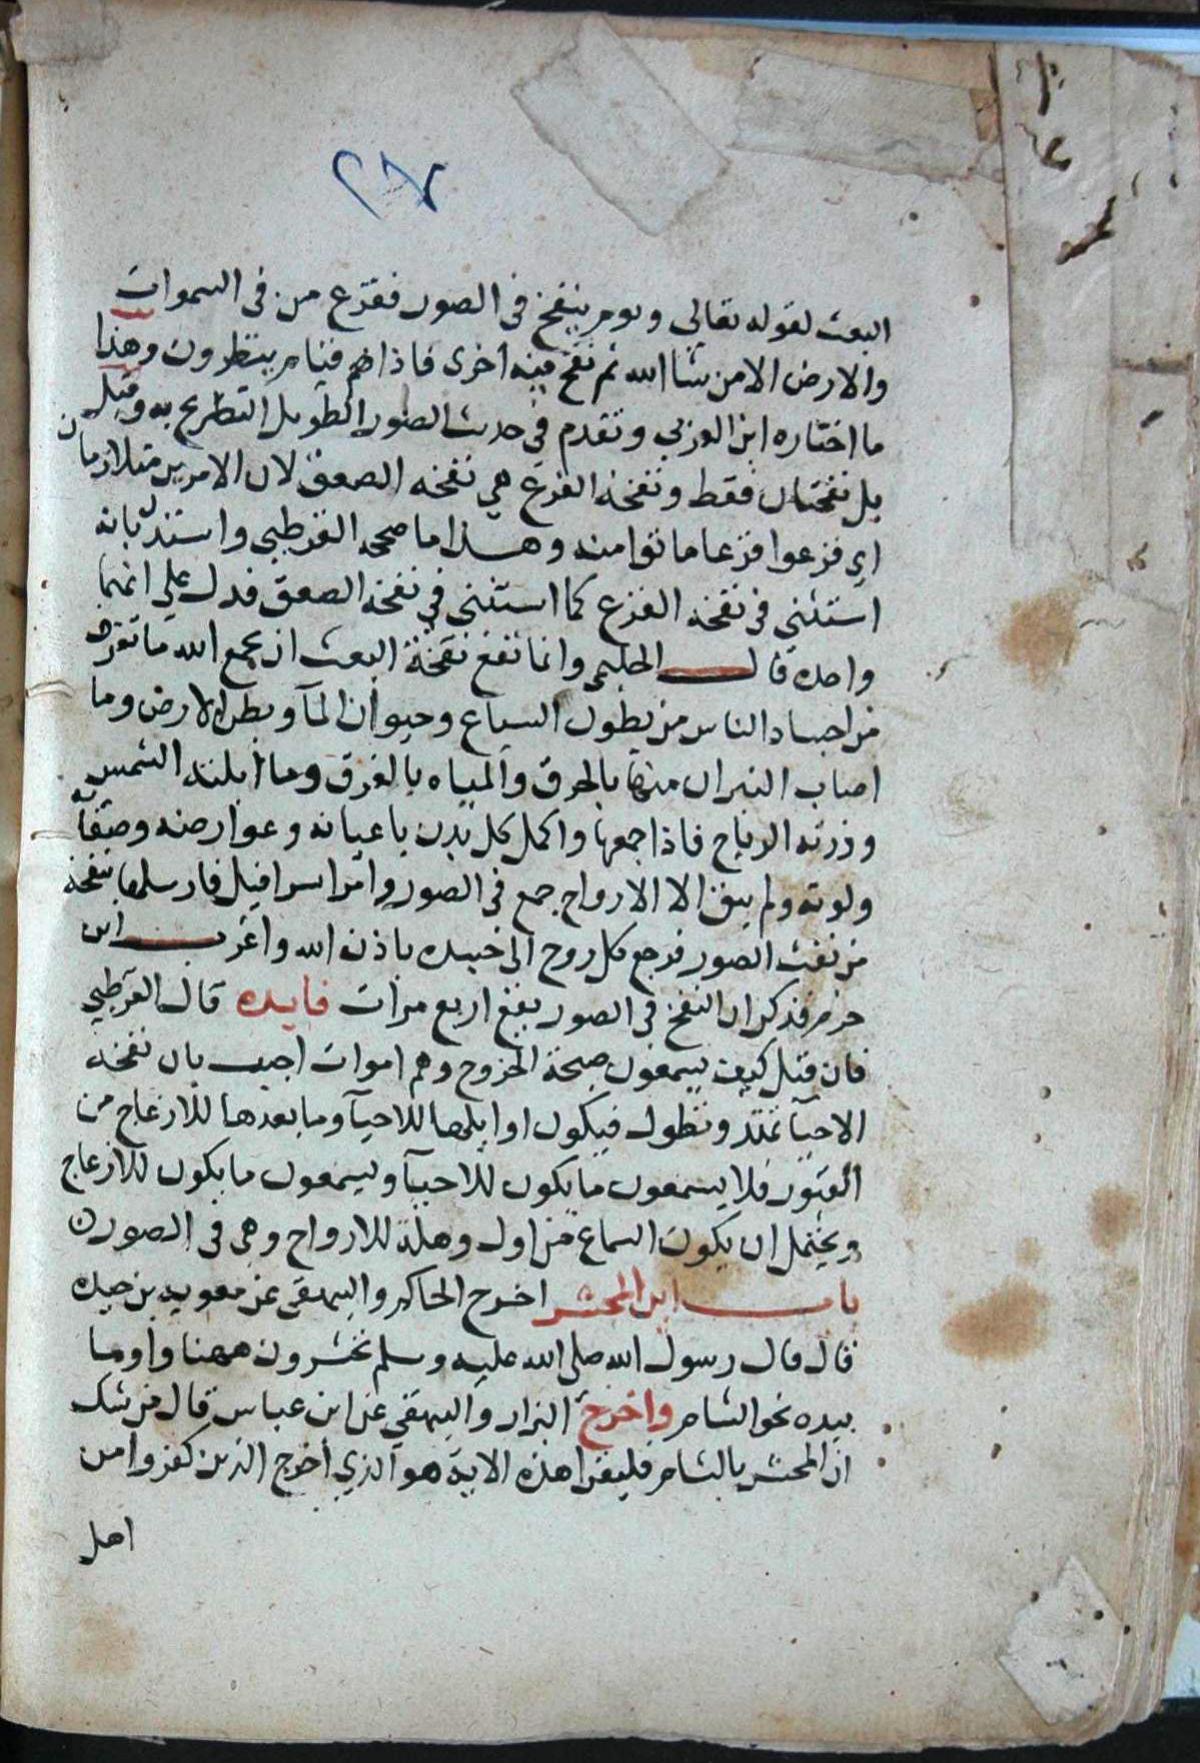 ٢٧
البعث لقوله تعالى ويوم ينفخ فى الصور ففزع من فى السموات
والارض الا من شا الله ثم نفخ فيه اخرى فاذا هم قيام ينظرون وهذا
ما اختاره ابن العربي وتقدم في حديث الصور الطويل التصريح به وقيل
بل نفختان فقط ونفخة الفزع هي نفخة الصعق لان الامرين متلازمان
اي فزعوا فزعا ماتوا منه وهذا ما صححه القرطبي واستدل بانه
استثني في نفخة الفزع كما استثنى في نفخة الصعق فدل على انهما
واحده قال الحليمي وانما تقع نفخة البعث ان يجمع الله ما تفرق
من اجساد الناس من بطون السباع وحيوان المآ وبطن الارض وما
اصاب النيران منها بالحرق والمياه بالغرق وما ابلته الشمس
وذرته الرياح فاذا جمعها واكمل كل بدن باعيانه وعوارضه وصفاته
ولونه ولم يبق الا الارواح جمع فى الصور وامر اسرافيل فارسلها بنفخة
من نفث الصور فرجع كل روح الى جسده باذن الله واغرب ابن
حزم فذكر ان النفخ في الصور يقع اربع مرات فايده قال القرطبي
فان قيل كيف يسمعون صيحة الخروج وهم اموات اجيب بان نفخة
الاحيآ تمتد وتطول فيكون اوايلها للاحيآ وما بعدها للازعاج من
القبور فلا يسمعون ما يكون للاحيآ ويسمعون ما يكون للازعاج
ويحتمل ان يكون السماع من اول وهلة للارواح وهي فى الصور
باب اين المحشر اخرج الحاكم والبيهقى عن معوية بن حيده
قال قال رسول الله صلى الله عليه وسلم تحشرون ههنا واوما
بيده نحو الشام واخرج البزار والبيهقي عن ابن عباس قال من شك
ان المحشر بالشام فليقرا هذه الاية هو الذي اخرج الذين كفروا من
اهل